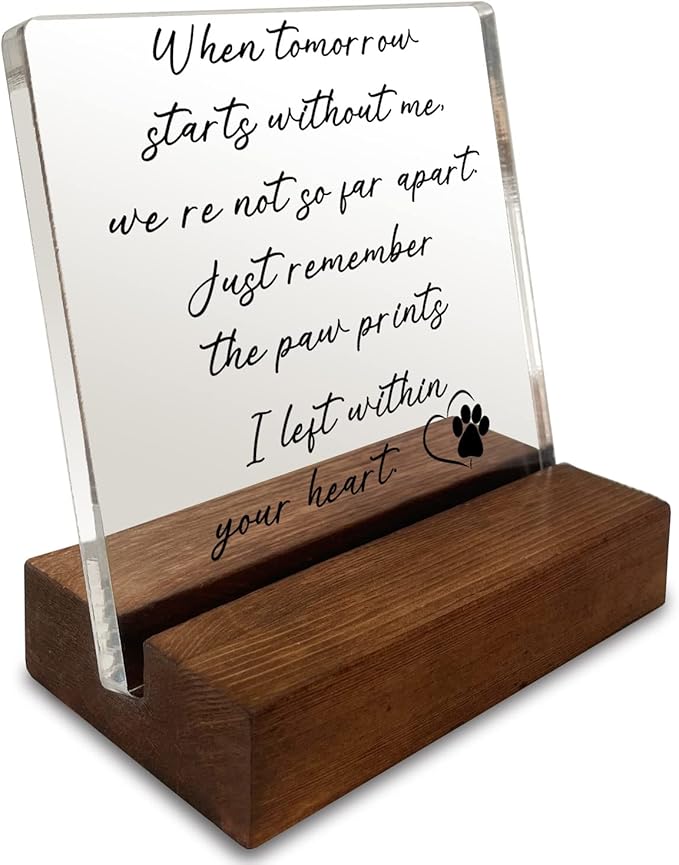 When tomorrow
starts without me,
we re not so far apart.
Just remember
the paw prints
I left within
your heart.